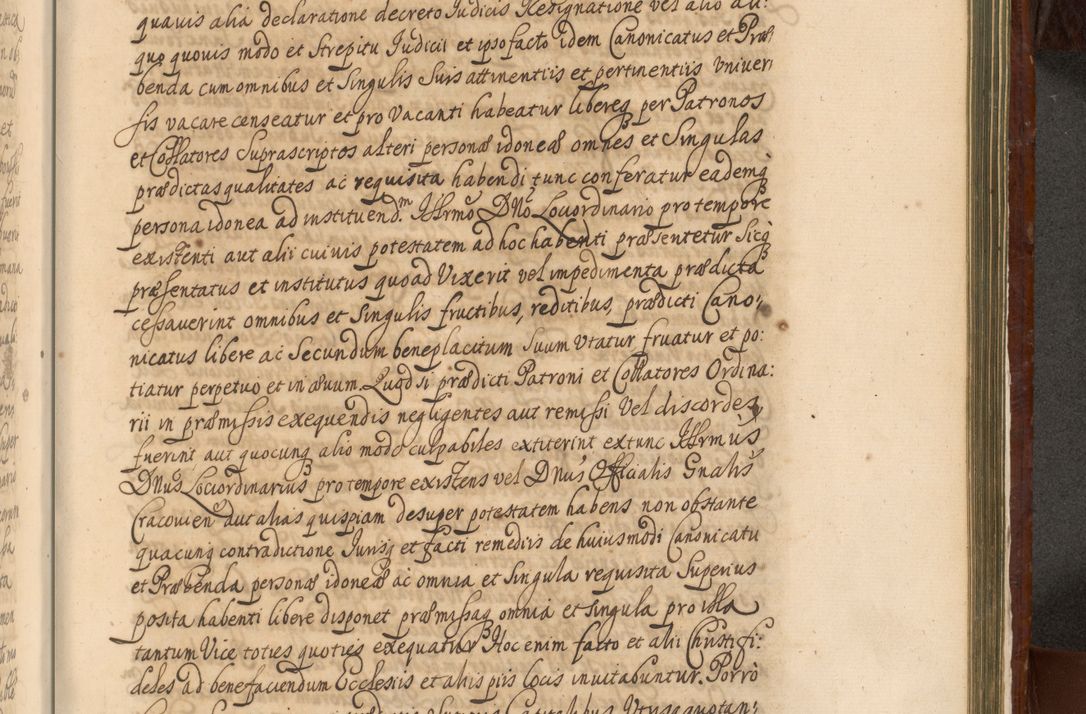 quavis alia declaratione decreto Judicis Resignatione vel alio ali:
quo quovis modo et Strepitu Judicii et ipso facto idem Canonicatus et Præ:
benda cum omnibus et Singulis Suis attinentiis et pertinentiis Univer:
sis vacare censeatur et pro Vacanti habeatur libereq per Patronos
et Collatores Suprascriptos alteri personæ idoneæ omnes et Singulas
prædictas qualitates ac requisita habendi tunc conferatur eademq
persona idonea ad instituend.m Illrmo Dno Lociordinario pro tempore
existenti aut alii cuivis potestatem ad hoc habenti præsentetur Sicq
præsentatus et institutus quoad Vixerit vel impedimenta prædicta
cessaverint omnibus et Singulis fructibus, reditibus, prædicti Cano:
nicatus libere ac Secundum beneplacitum Suum Utatur fruatur et po:
tiatur perpetuo et in ævum. Quod si prædicti Patroni et Collatores Ordina:
rii in præmissis exequendis negligentes aut remissi vel discordes
fuerint aut quocunq alio modo culpabiles extiterint extunc Illrmus
Dnus Lociordinarius pro tempore existens vel Dnus Officialis Gnalis
Cracovien aut alias quispiam desuper potestatem habens non obstante
quacunq contradictione Jurisq et facti remediis de huiusmodi Canonicatu
et Præbenda personæ idoneæ ac omnia et Singula requisita Superius
posita habenti libere disponet præmissaq omnia et Singula pro illa
tantum Vice toties quoties exequatur Hoc enim facto et alii Christi fi:
deles ad benefaciendum Ecclesiis et aliis piis Locis invitabuntur. Porro